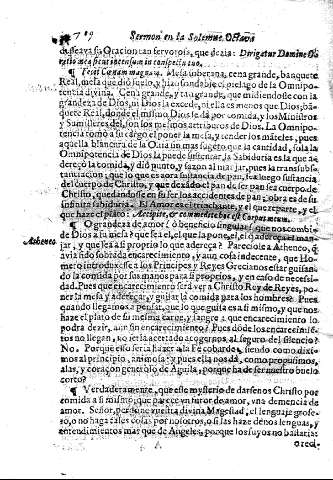 Sermon en la Solemne Octava
deseava su Oracion tan fervorosa, que dezia: Dirigatur Domine
ratio mea sicut incensum in conspectu tuo.
¶ Fecit Coenam magnam. Mesa soberana, cena grande, banquete
Real, mesa que dió suelo, y hizo fondable el pielago de la Omnipo-
tencia divina. Cena grande, y tan grande, que midiendose con la
grandeza de Dios, ni Dios la excede, ni ella es menos que Dios; bã-
quete Real, donde el mismo Dios se dà por comida, y los Ministros
y Sumilleres del, son los mesmos atributos de Dios. La Omnipo-
tencia tomò a su cargo el poner la mesa, y tender los mãteles, pues
aquella blancura de la Ostia sin mas sugeto que la cantidad, sola la
Omnipotencia de Dios la puede sustentar: la Sabiduria es la que a-
dereçò la comida, y dió punto, y sazon al manjar, pues la transubs-
tanciacion; que lo que es aora sustancia de pan, sea luego sustancia
del cuerpo de Christo, y que dexãdo el pan de ser pan sea cuerpo de
Christo, quedandose en su ser los accidentes de pan; obra es de su
infinita sabiduria. El Amor es el trinchante, y el que reparte, y el
que haze el plato: Accipite, & commedite hoc est Corpus meum.
¶ O grandeza de amor! ò beneficio singular! que nos combi-
de Dios a su mesa? que sea el, el que la pone, el, el que adereça el man-
jar, y que sea a si proprio lo que adereça? Pareciole a Atheneo, q̃
Atheneo
avia sido sobrada encarecimiento, y aun cosa indecente, que Ho-
mero introduxesse a los Principes y Reyes Grecianos estar guisan-
do la comida por las manos para si proprios, y en caso de necessi-
dad. Pues que encarecimiento serà ver a Christo Rey de Reyes, po-
ner la mesa y adereçar, y guisar la comida para los hombres? Pues
quando llegamos a pensar, que lo que guisa es a si mismo, y que nos
haze el plato de su misma carne, y sangre a que encarecimiento lo
podra dezir, aun sin encarecimiento? Pues dõde los encarecimiẽ-
tos no llegan, no serà acertado acogernos al seguro del silencio?
No. Porque esso seria hazer a la Fe cobarde, siendo como dixi-
mos al principio, animosa; y pues ella nos dà, como propusimos,
alas, y coraçon generoso de Aguila, porque ha de ser nuestro buelo
corto?
¶ Verdaderamente, que esse mysterio de darsenos Christo por
comida a si mismo, que parece un furor de amor, una demencia de
amor. Señor, perdone vuestra divina Magestad, el lenguaje grosse-
ro, no haga tales cosas por nosotros, o si las haze denos lenguas, y
entendimientos mas que de Angeles, porque los suyos no bastarian